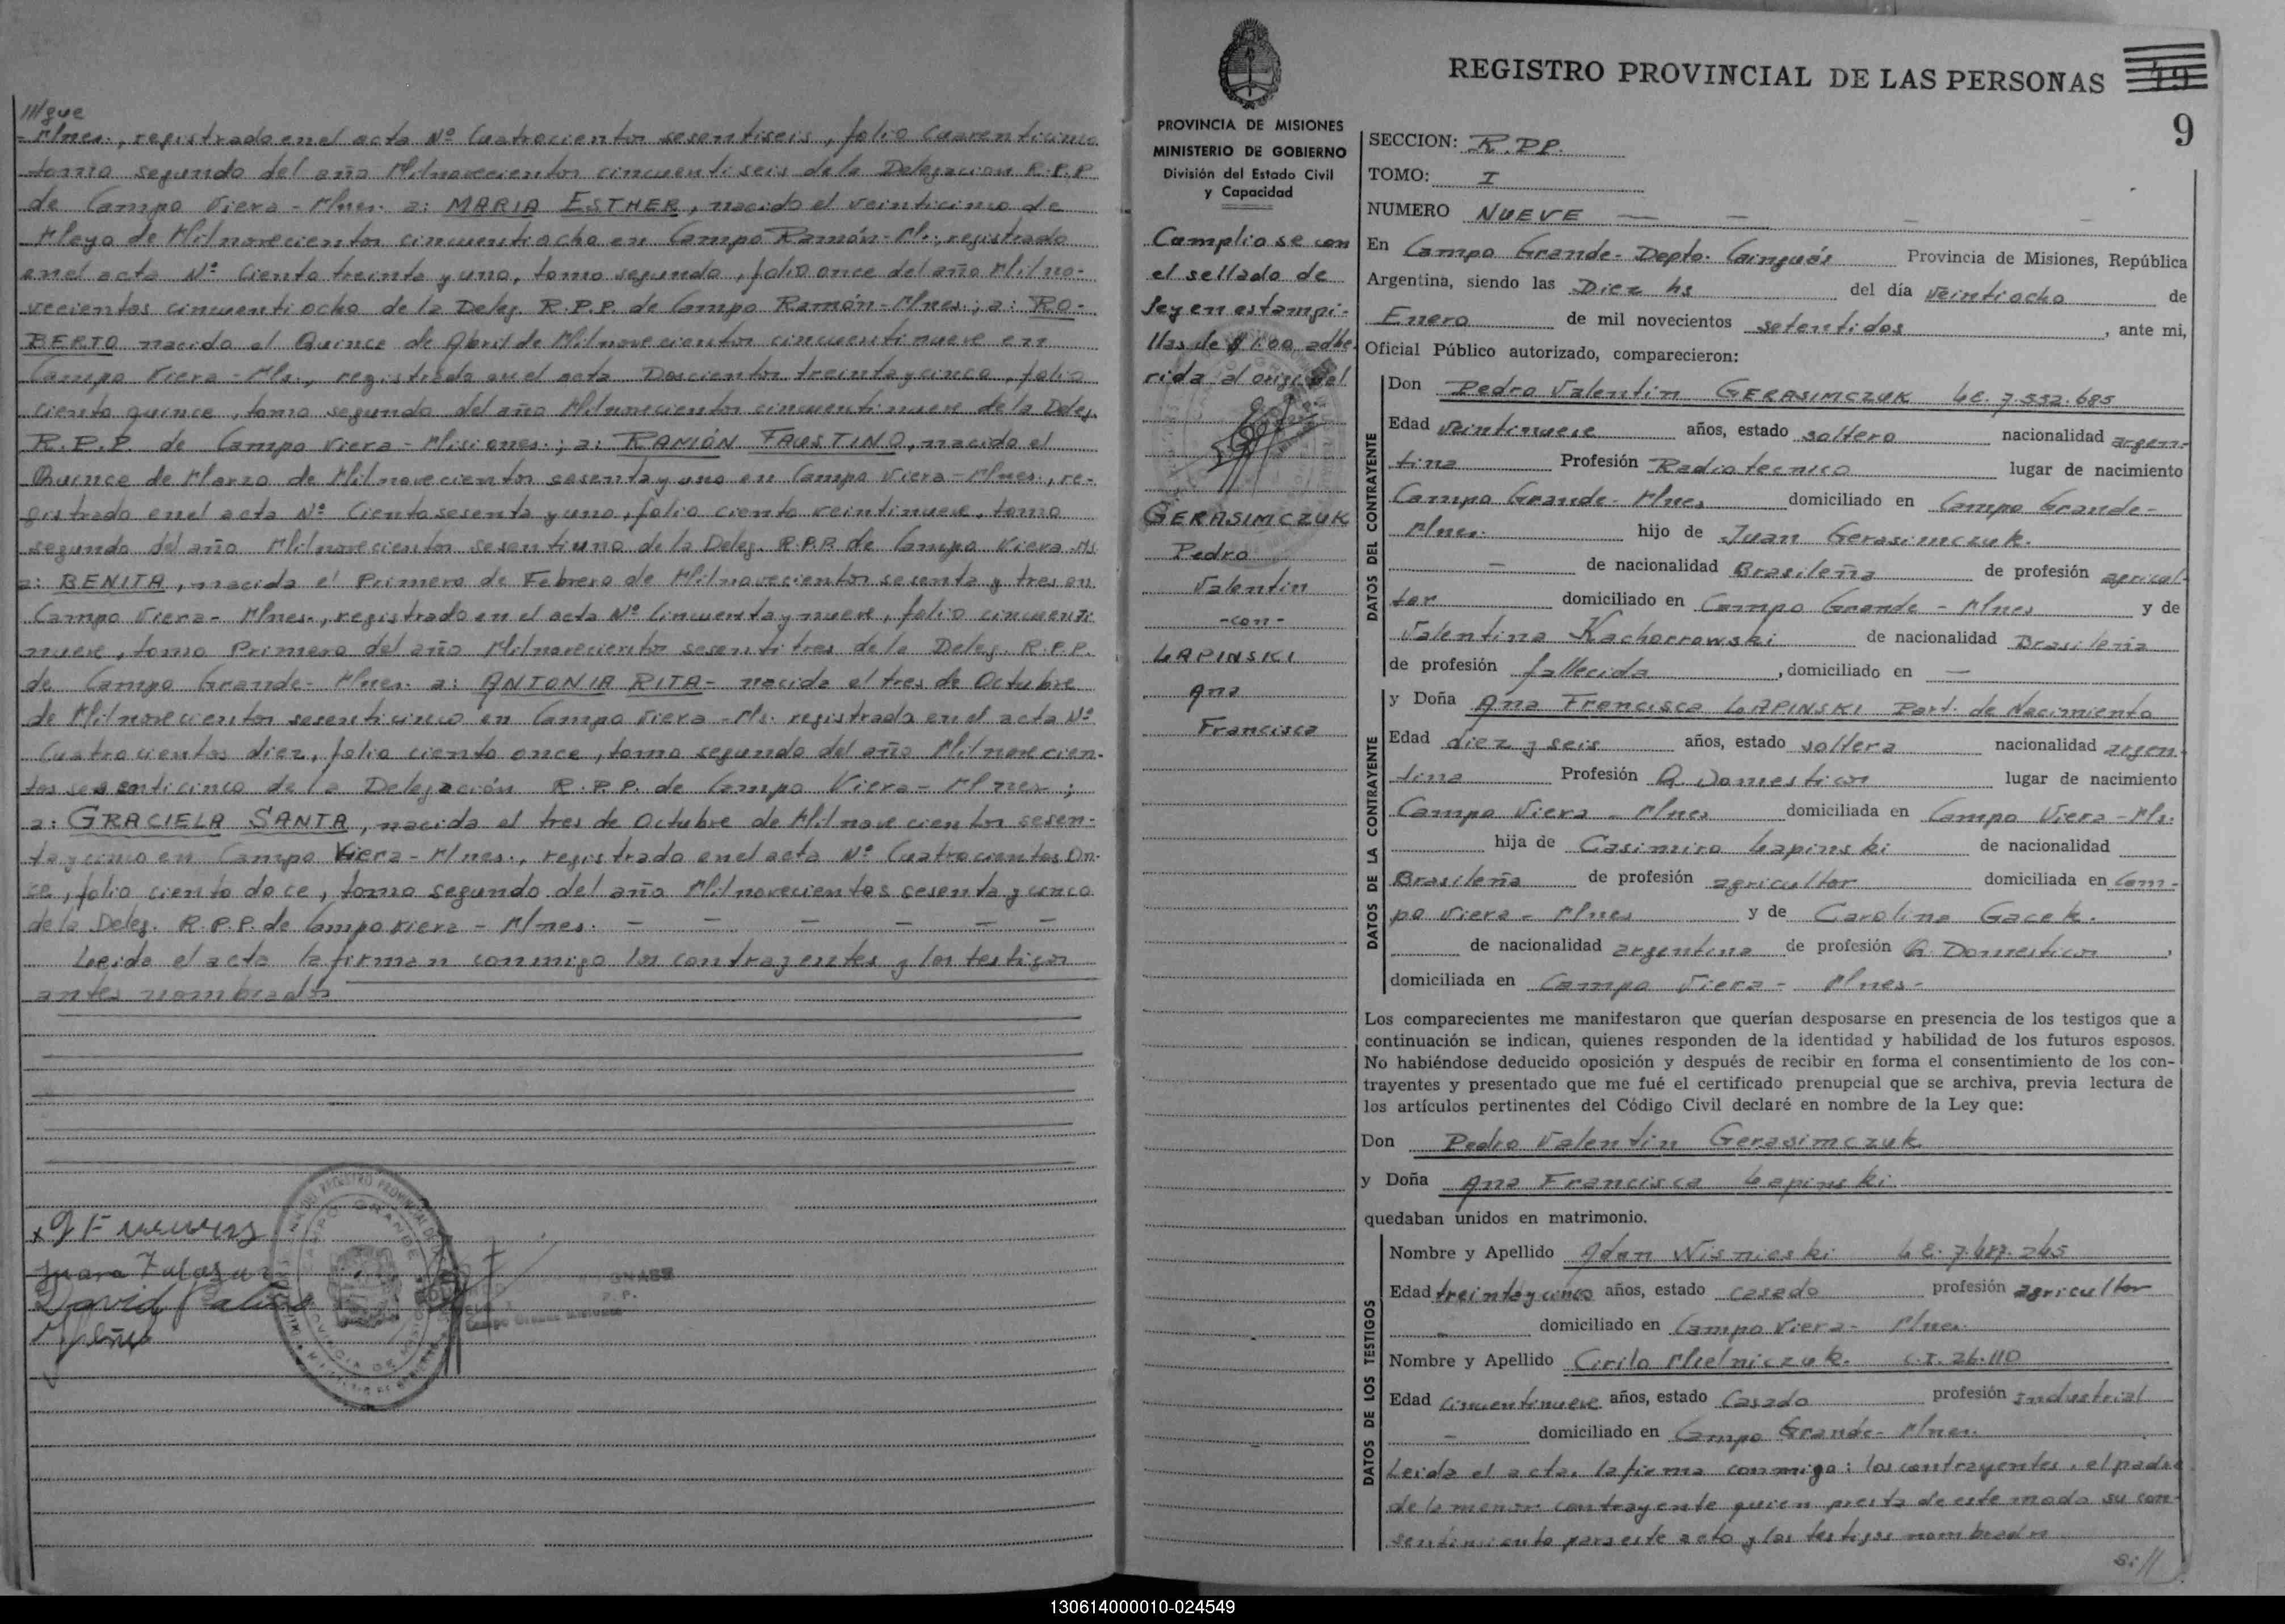 ///gue
- Mnes., registrado en el acta Nº Cuatrocientos sesentiseis, folio Cuarenticinco
tomo segundo del año Milnovecientos cincuentiseis de la Delegacion R.P.P
de Campo Viera - Mnes. a: MARIA ESTHER, nacido el veinticinco de
Mayo de Milnovecientos cincuentiocho en Campo Ramón - Ms., registrado
en el acta Nº Ciento treinta y uno, tomo segundo, folio once del año Milno-
vecientos cincuentiocho de la Deleg. R.P.P. de Campo Ramón - Mnes.; a: RO-
BERTO nacido el Quince de Abril de Milnovecientos cincuentinueve en
Campo Viera - Ms., registrado en el acta Doscientos treinta y cinco, folio
ciento quince, tomo segundo del año Milnovecientos cincuentinueve de la Deleg.
R.P.P. de Campo Viera - Misiones.; a: RAMÓN FAUSTINO, nacido el
Quince de Marzo de Milnovecientos sesenta y uno en Campo Viera - Mnes., re-
gistrado en el acta Nº Ciento sesenta y uno, folio ciento veintinueve, tomo
segundo del año Milnovecientos sesentiuno de la Deleg. R.P.P. de Campo Viera Ms
a: BENITA, nacida el Primero de Febrero de Milnovecientos sesenta y tres en
Campo Viera - Mnes., registrado en el acta Nº Cincuenta y nueve, folio cincuenti
nueve, tomo Primero del año Milnovecientos sesentitres de la Deleg. R.P.P.
de Campo Grande - Mnes. a: ANTONIA RITA - nacida el tres de Octubre
de Milnovecientos sesenticinco en Campo Viera - Ms. registrada en el acta Nº
Cuatrocientos diez, folio ciento once, tomo segundo del año Milnovecien-
tos sesenticinco de la Delegación R.P.P. de Campo Viera - Mnes. ;
a: GRACIELA SANTA, nacida el tres de Octubre de Milnovecientos sesen-
ta y cinco en Campo Viera - Mnes., registrado en el acta Nº Cuatrocientos On-
ce, folio ciento doce, tomo segundo del año Milnovecientos sesenta y cinco
de la Deleg. R.P.P. de Campo Viera - Mnes. - - - - - -
Leida el acta la firman conmigo los contrayentes y los testigos
antes nombrados
David
Campo Grande Misiones
REGISTRO PROVINCIAL DE LAS PERSONAS 49
9
PROVINCIA DE MISIONES
MINISTERIO DE GOBIERNO
División del Estado Civil
y Capacidad
Camplio se con
el sellado de
ley en estampi-
llas de $ 1.00 adhe
rida al original
GERASIMCZUK
Pedro
Valentin
-con-
LAPINSKI
Ana
Francisca
SECCION: R.PP.
TOMO: I
NUMERO NUEVE
En Campo Grande - Depto. Cainguás Provincia de Misiones, República
Argentina, siendo las Diez hs del día veintiocho de
Enero de mil novecientos setentidos, ante mi,
Oficial Público autorizado, comparecieron:
DATOS DEL CONTRAYENTE
Don Pedro Valentin GERASIMCZUK L.E. 7.552.685
Edad veintinueve años, estado soltero nacionalidad argen-
tina Profesión Radiotecnico lugar de nacimiento
Campo Grande - Mnes domiciliado en Campo Grande -
Mnes. hijo de Juan Gerasimczuk.
- de nacionalidad Brasileña de profesión agricul-
tor domiciliado en Campo Grande - Mnes y de
Valentina Kachorrowski de nacionalidad Brasileña
de profesión fallecida, domiciliado en —
DATOS DE LA CONTRAYENTE
y Doña Ana Francisca LAPINSKI Part. de Nacimiento
Edad diez y seis años, estado soltera nacionalidad argen-
tina Profesión Q. Domesticos lugar de nacimiento
Campo Viera - Mnes domiciliada en Campo Viera - Ms.
hija de Casimiro Lapinski de nacionalidad
Brasileña de profesión agricultor domiciliada en Cam-
po Viera - Mnes y de Carolina Gacek.
de nacionalidad argentina de profesión Q. Domesticos,
domiciliada en Campo Viera - Mnes -
Los comparecientes me manifestaron que querían desposarse en presencia de los testigos que a
continuación se indican, quienes responden de la identidad y habilidad de los futuros esposos.
No habiéndose deducido oposición y después de recibir en forma el consentimiento de los con-
trayentes y presentado que me fué el certificado prenupcial que se archiva, previa lectura de
los artículos pertinentes del Código Civil declaré en nombre de la Ley que:
Don Pedro Valentin Gerasimczuk
y Doña Ana Francisca Lapinski
quedaban unidos en matrimonio.
DATOS DE LOS TESTIGOS
Nombre y Apellido Adan Wisnieski L.E. 7.487.245
Edad treintaycinco años, estado casado profesión agricultor
domiciliado en Campo Viera - Mnes.
Nombre y Apellido Cirilo Mielniczuk. C.I. 26.110
Edad cincuentinueve años, estado Casado profesión industrial
- domiciliado en Campo Grande - Mnes.
Leida el acta, la firma conmigo: los contrayentes, el padre
de la menor contrayente quien presta de este modo su con-
sentimiento para este acto y los testigos nombrados
si//
130614000010-024549